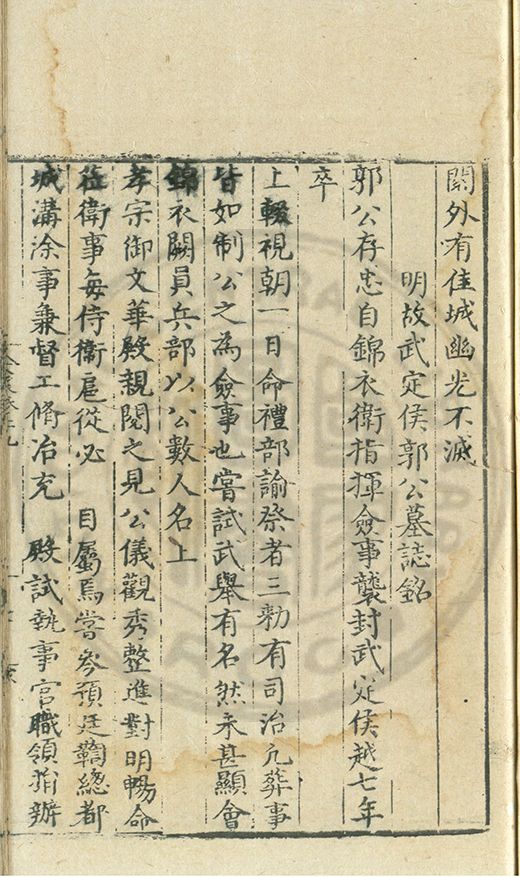 關外有佳城幽光不滅
明故武定侯郭公墓誌銘
郭公存忠自錦衣衛指揮僉事襲封武定侯越七年
卒
上輟視朝一日命禮部諭祭者三勑有司治凢葬事
皆如制公之為僉事也嘗試武舉有名然未甚顯會
錦衣闕員兵部以公數人名上
孝宗御文華殿親閱之見公儀觀秀整進對明暢命
莅衛事每侍衛扈從必 目屬焉嘗參預廷鞫總都
城溝涂事兼督工脩冶充 殿試執事官職領脩辦